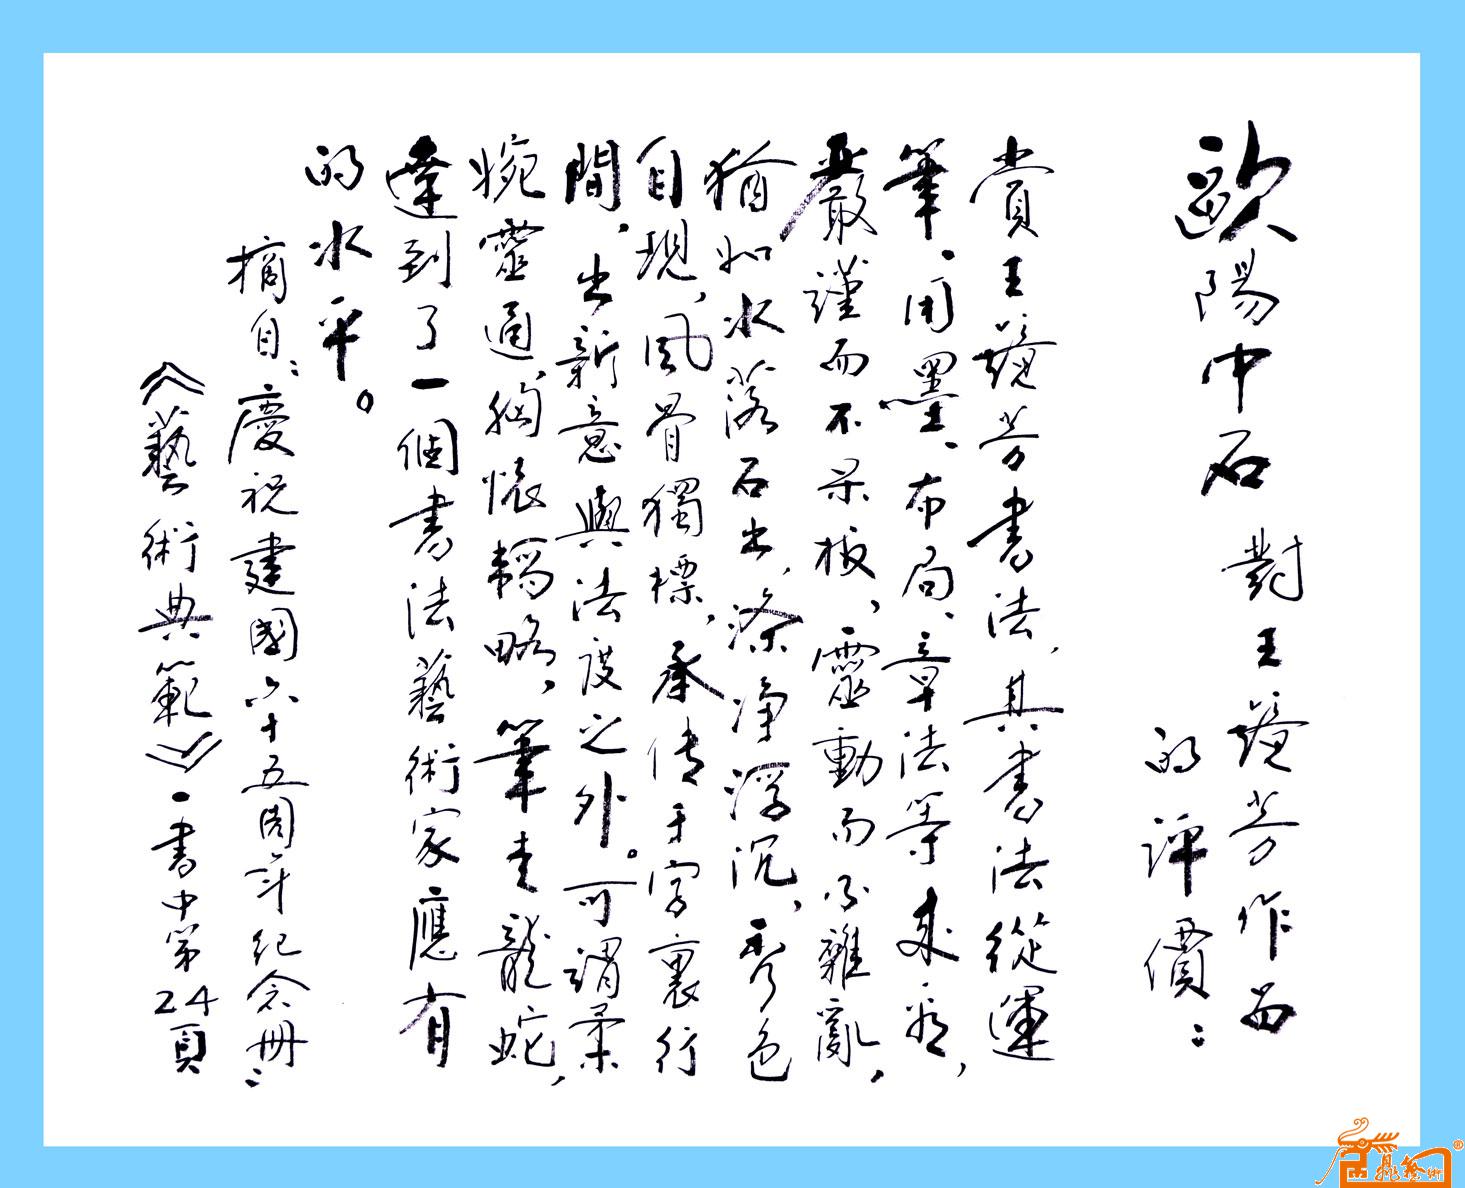 歐陽中石 對王鏡芳作品
的評價：
賞王鏡芳書法，其書法從運
筆、用墨、布局、章法等來看，
嚴謹而不呆板，靈動而不雜亂，
猶如水落石出，滌净浮沉，秀色
自現，風骨獨標，承傳于字裏行
間，出新意與法度之外。可謂柔
婉靈通，胸懷韜略，筆走龍蛇，
達到了一個書法藝術家應有
的水平。
摘自：慶祝建國六十五周年紀念册：
《藝術典範》一書中第24頁